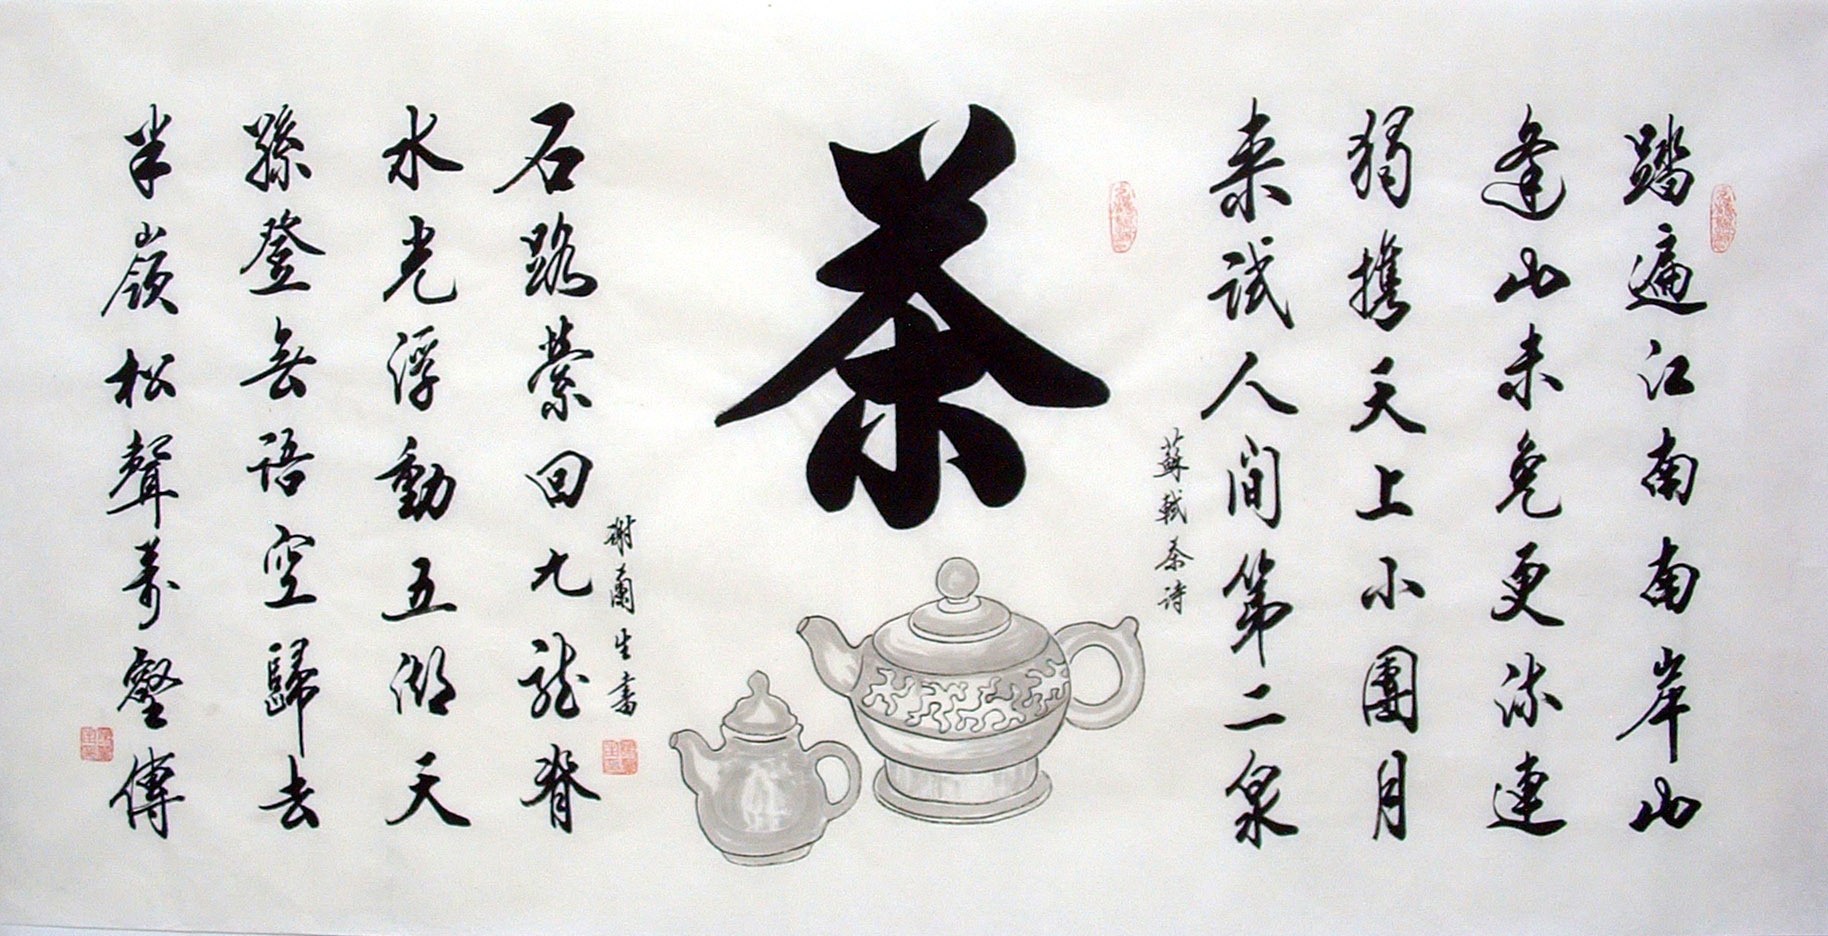 踏遍江南南岸山
逢山未免更流連
獨攜天上小團月
来试人间第二泉
蘇軾茶诗
茶
石路縈回九龙脊
水光浮動五湖天
孫登無语空歸去
半嶺松聲萬壑傳
谢蘭生書